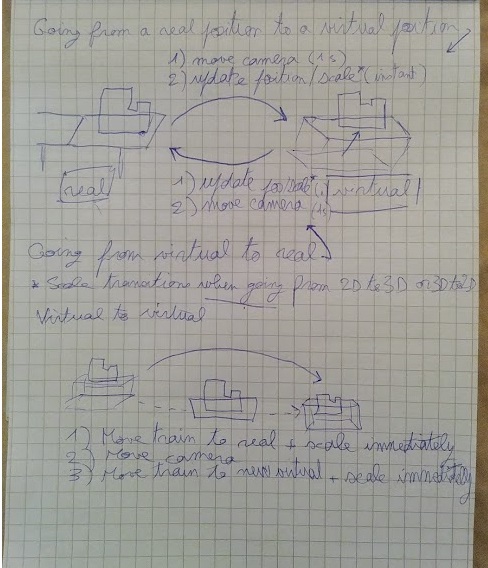 Going from a real position to a virtual position
1) move camera (1s)
2) update position/scale* (instant)
real
1) update pos/scale* (i)
virtual
2) move camera (1s)
Going from virtual to real
* Scale transitions when going from 2D to 3D or 3D to 2D
Virtual to virtual
1) Move train to real + scale immediately
2) Move camera
3) Move train to new virtual + scale immediatly